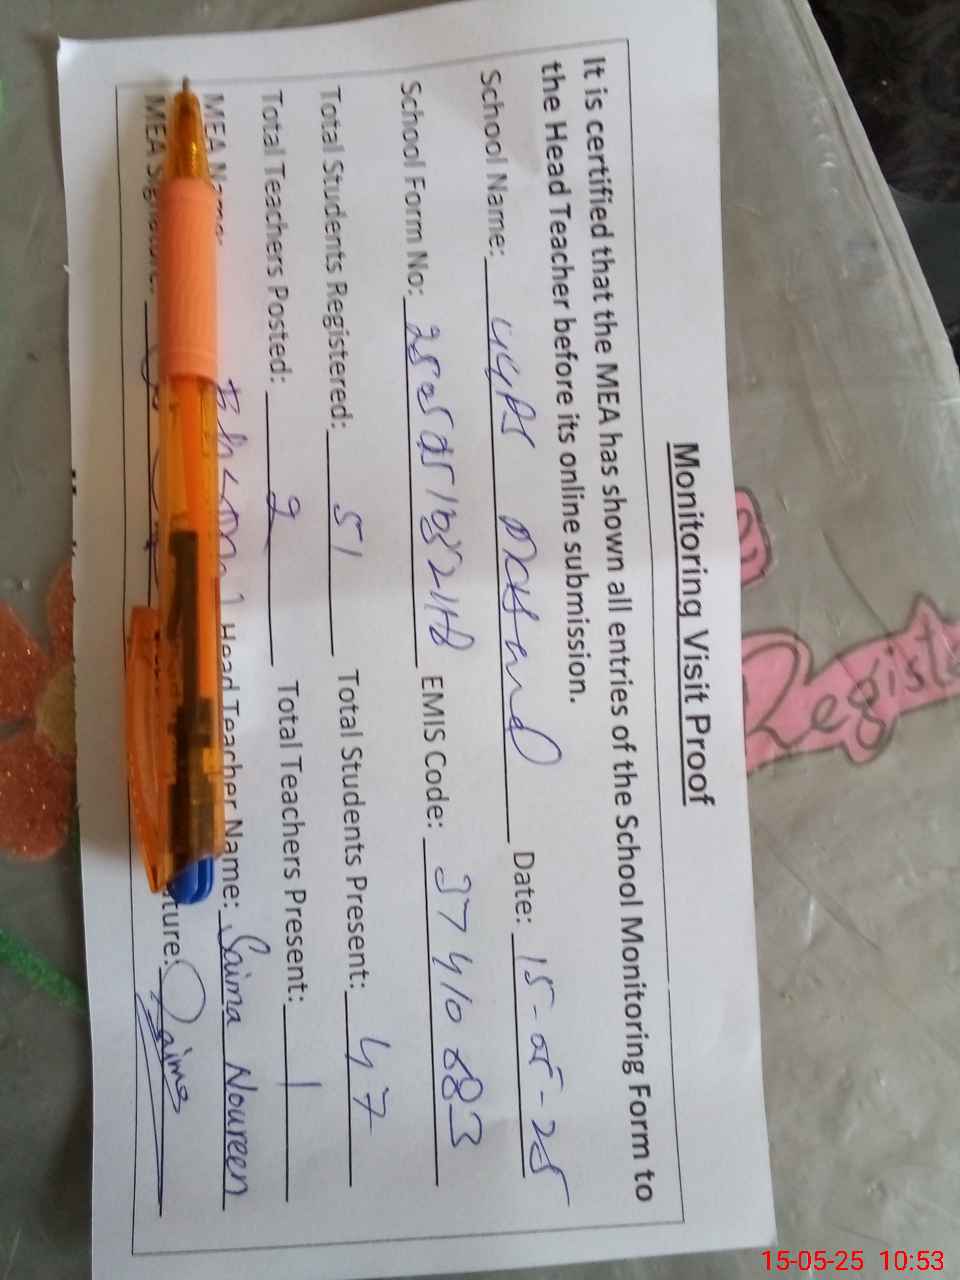 Monitoring Visit Proof
It is certified that the MEA has shown all entries of the School Monitoring Form to
the Head Teacher before its online submission.
School Name: Date: 15-05-25
School Form No: EMIS Code: 37410683
Total Students Registered: 51 Total Students Present: 47
Total Teachers Posted: 2 Total Teachers Present: 1
MEA Name: Head Teacher Name: Saima Noureen
MEA Signature: ture: Saima
Registe
15-05-25 10:53